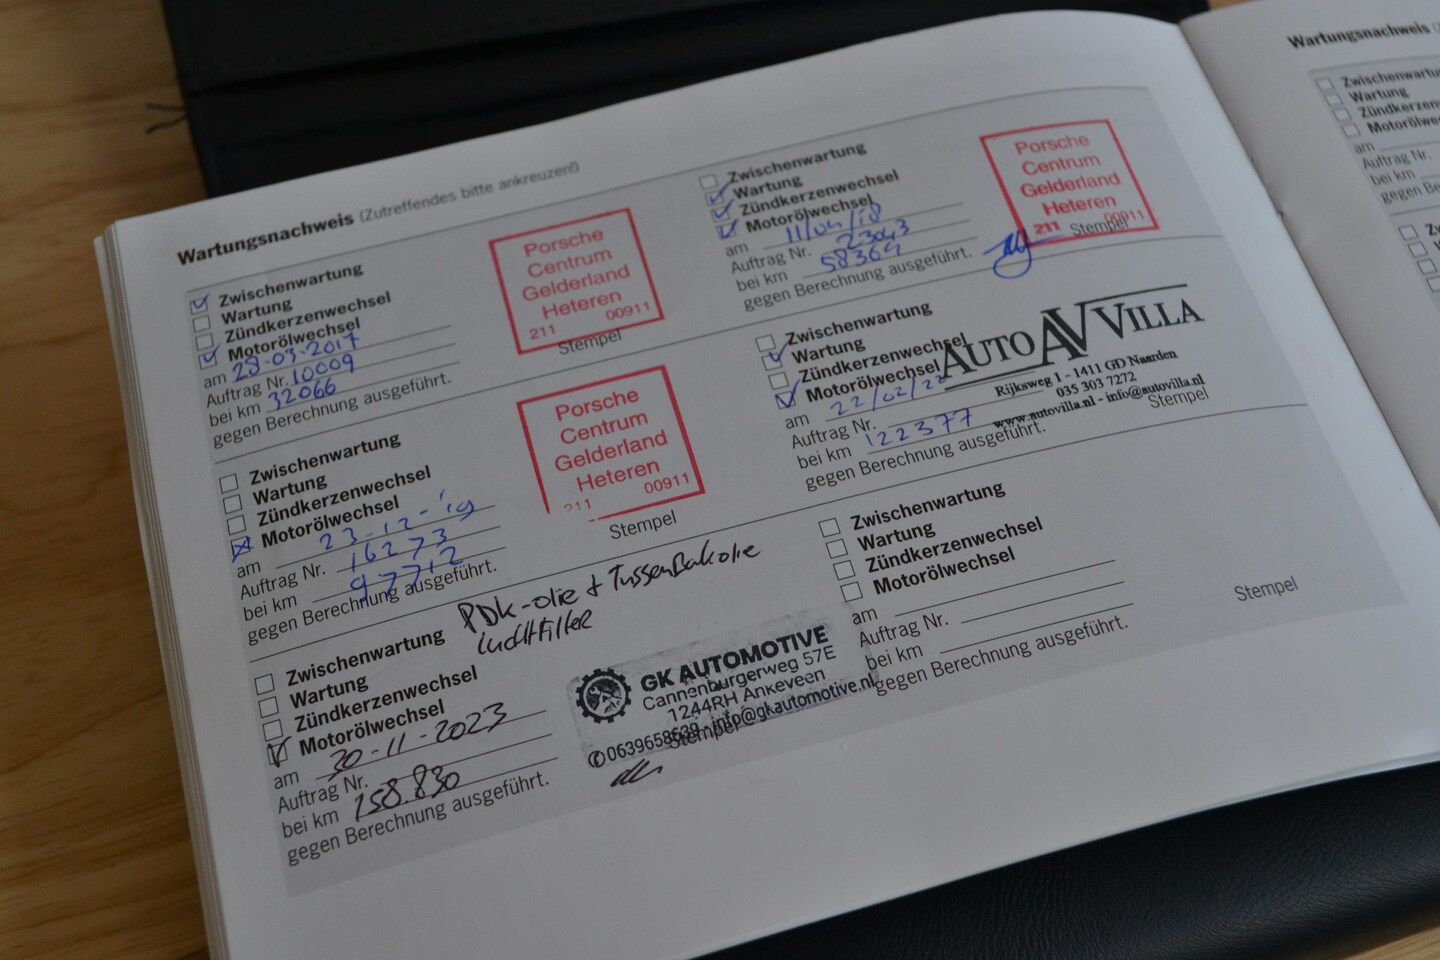 Wartungsnachweis (Zutreffendes bitte ankreuzen!)
Zwischenwartung
Wartung
Zündkerzenwechsel
Motorölwechsel
am 28-03-2017
Auftrag Nr. 10009
bei km 32066
gegen Berechnung ausgeführt.
Porsche
Centrum
Gelderland
Heteren
211 00911
Stempel
Zwischenwartung
Wartung
Zündkerzenwechsel
Motorölwechsel
am 11/04/18
Auftrag Nr. 23043
bei km 58369
gegen Berechnung ausgeführt.
Porsche
Centrum
Gelderland
Heteren
211 00911
Stempel
Zwischenwartung
Wartung
Zündkerzenwechsel
Motorölwechsel
am 23-12-'19
Auftrag Nr. 16273
bei km 97712
gegen Berechnung ausgeführt.
Porsche
Centrum
Gelderland
Heteren
211 00911
Stempel
Zwischenwartung
Wartung
Zündkerzenwechsel
Motorölwechsel
am 22/02/22
Auftrag Nr.
bei km 122377
gegen Berechnung ausgeführt.
AUTO AV VILLA
Rijksweg 1 - 1411 GD Naarden
035 303 7272
www.autovilla.nl - info@autovilla.nl
Stempel
PDK-olie + Tussenbakolie
Luchtfilter
Zwischenwartung
Wartung
Zündkerzenwechsel
Motorölwechsel
am 30-11-2023
Auftrag Nr.
bei km 158.830
gegen Berechnung ausgeführt.
GK AUTOMOTIVE
Cannenburgerweg 57E
1244RH Ankeveen
0639658639 - info@gkautomotive.nl
Stempel
Zwischenwartung
Wartung
Zündkerzenwechsel
Motorölwechsel
am
Auftrag Nr.
bei km
gegen Berechnung ausgeführt.
Stempel
Wartungsnachweis
Zwischenwartu
Wartung
Zündkerzenwe
Motorölwechs
am
Auftrag Nr.
bei km
gegen Be